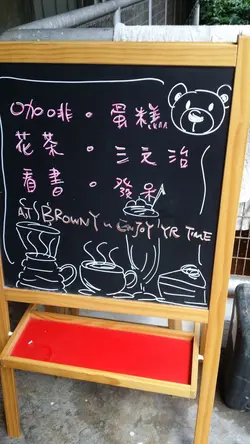 咖啡・蛋糕
花茶・三文治
看書・發呆
At BROWNY ~ ENJOY YR TIME